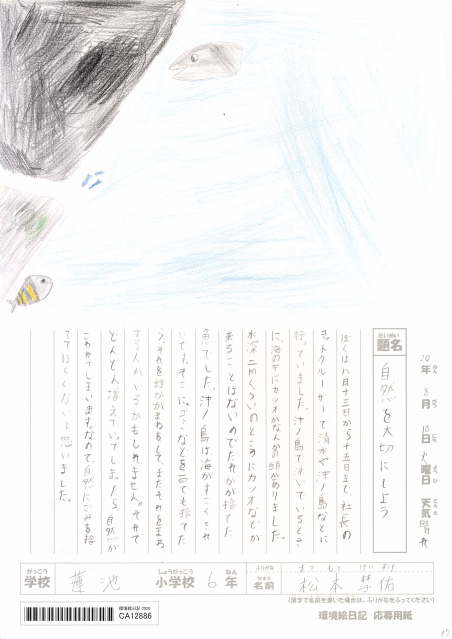 20年 8月 18日 火曜日 天気 晴れ
だいめい
題名 自然を大切にしよう
ぼくは八月十三日から十五日まで、社長の
クルーザーで清水や沖ノ島などに
行っていました。沖ノ島で泳いでいるとき
に、海の中にカツオかなんかの頭がありました。
水深二mぐらいのところにカツオなどが
来ることはないのでだれかが捨てた
魚でした。沖ノ島は海がすごくきれ
いです。そこに、ゴミなどを一回でも捨てた
ら、それを誰かがまねをして、またそれをまね
する人がいるかもしれません。それで
どんどん増えていってしまったら、自然が
こわれてしまいます。なので、自然にごみを捨
ててほしくないと思いました。
がっこう しょうがっこう ねん ふりがな まつもと けい
学校 蓮池 小学校 6年 名前 松本
(漢字で名前を書いた場合は、ふりがなをふってください)
環境絵日記 2020
CA12886
環境絵日記 応募用紙